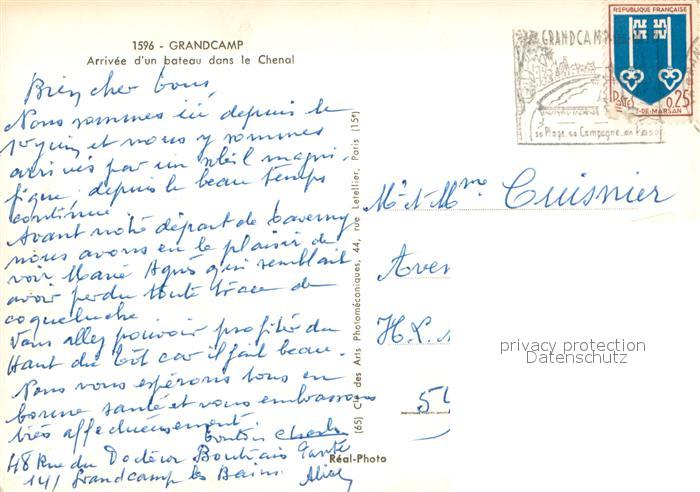 1596 - GRANDCAMP
Arrivée d'un bateau dans le Chenal
Bien cher tous,
Nous sommes ici depuis le
10 juin et nous y sommes
arrivés par un soleil magni-
fique. depuis le beau temps
continue.
Avant notre départ de Taverny
nous avons eu le plaisir de
voir Marie Agnès qui semblait
avoir perdu toute trace de
coqueluche.
Vous allez pouvoir profiter du
Haut du Lot car il fait beau.
Nous vous espérons tous en
bonne santé et vous embrassons
très affectueusement.
tonton Charles
48 Rue du Docteur Boutrais Tante
14 / Grandcamp les Bains Alice
Réal-Photo
(65) Cie des Arts Photomécaniques, 44, rue Letellier, Paris (15e)
GRANDCAMP
sa Plage, sa Campagne, son
REPUBLIQUE FRANÇAISE
POSTES
0,25
MT-DE-MARSAN
Mr et Mme Cuisnier
Aven
H.L.M
54
privacy protection
Datenschutz